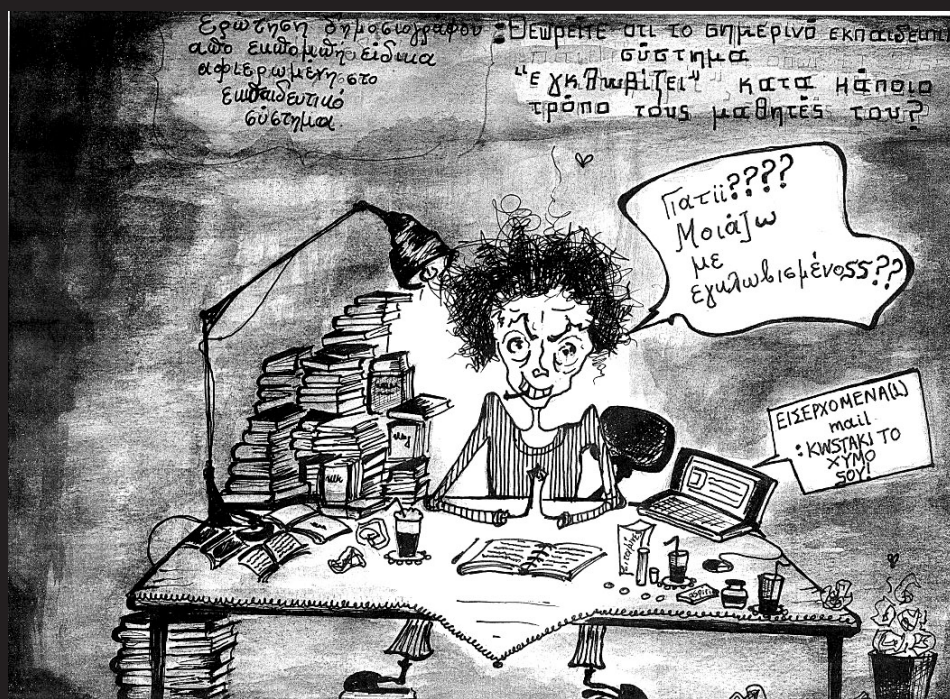 Ερώτηση δημοσιογράφου :
από εκπομπή ειδικα
αφιερωμένη στο
εκπαιδευτικό
σύστημα.
Θεωρείτε οτι το σημερινό εκπαιδευτι
σύστημα
"εγκλωβίζει" κατα κάποιο
τρόπο τους μαθητές του?
Γιατιί????
Μοιάζω
με
εγκλωβισμένοςς??
ΕΙΣΕΡΧΟΜΕΝΑ(1)
mail
:KWSTAKI TO
XYMO
SOY!